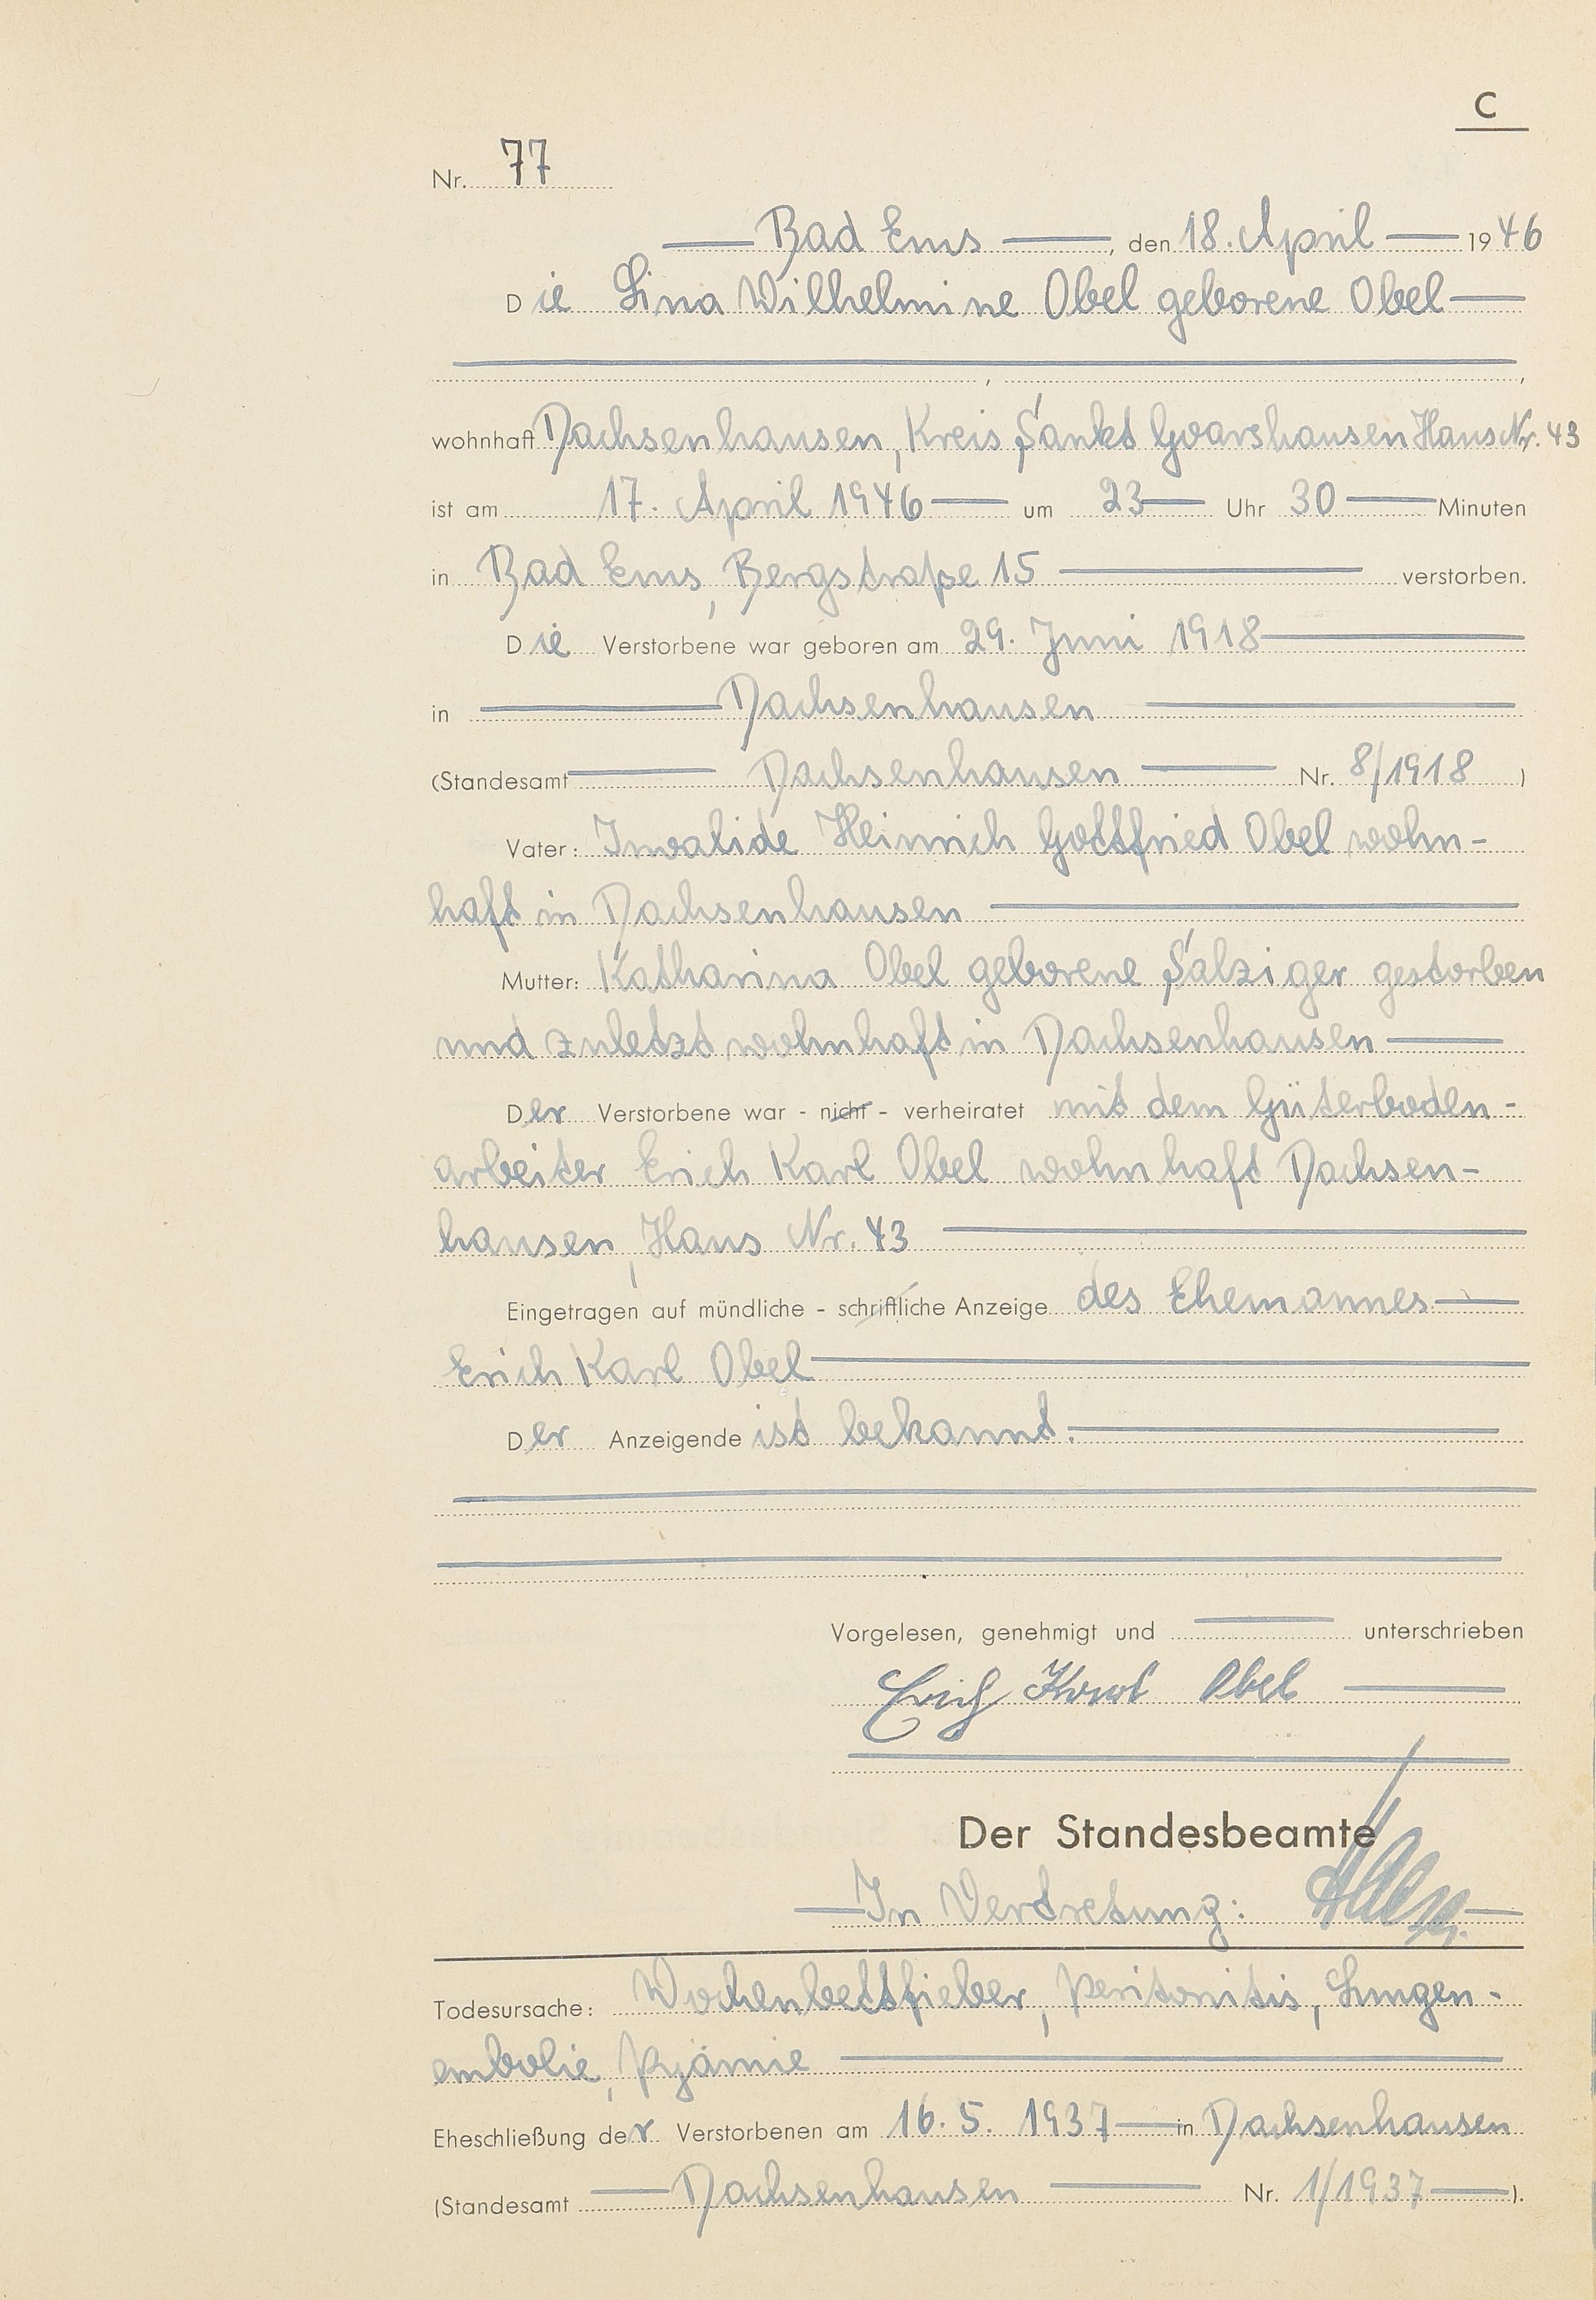 C
Nr. 77
Bad Ems, den 18. April 1946
Die Lina Wilhelmine Obel geborene Obel
, ,
wohnhaft Dachsenhausen, Kreis Sankt Goarshausen Haus Nr. 43
ist am 17. April 1946 um 23 Uhr 30 Minuten
in Bad Ems, Bergstraße 15 verstorben.
Die Verstorbene war geboren am 29. Juni 1918
in Dachsenhausen
(Standesamt Dachsenhausen Nr. 8/1918 )
Vater: Invalide Heinrich Gottfried Obel wohn-
haft in Dachsenhausen
Mutter: Katharina Obel geborene Salziger gestorben
und zuletzt wohnhaft in Dachsenhausen
Der Verstorbene war - nicht - verheiratet mit dem Güterboden-
arbeiter Erich Karl Obel wohnhaft Dachsen-
hausen, Haus Nr. 43
Eingetragen auf mündliche - schriftliche Anzeige des Ehemannes
Erich Karl Obel
Der Anzeigende ist bekannt.
Vorgelesen, genehmigt und unterschrieben
Erich Karl Obel
Der Standesbeamte
In Vertretung:
Todesursache: Wochenbettfieber, Peritonitis, Lungen-
embolie, Pyämie
Eheschließung der Verstorbenen am 16. 5. 1937 in Dachsenhausen
(Standesamt Dachsenhausen Nr. 1/1937 ).